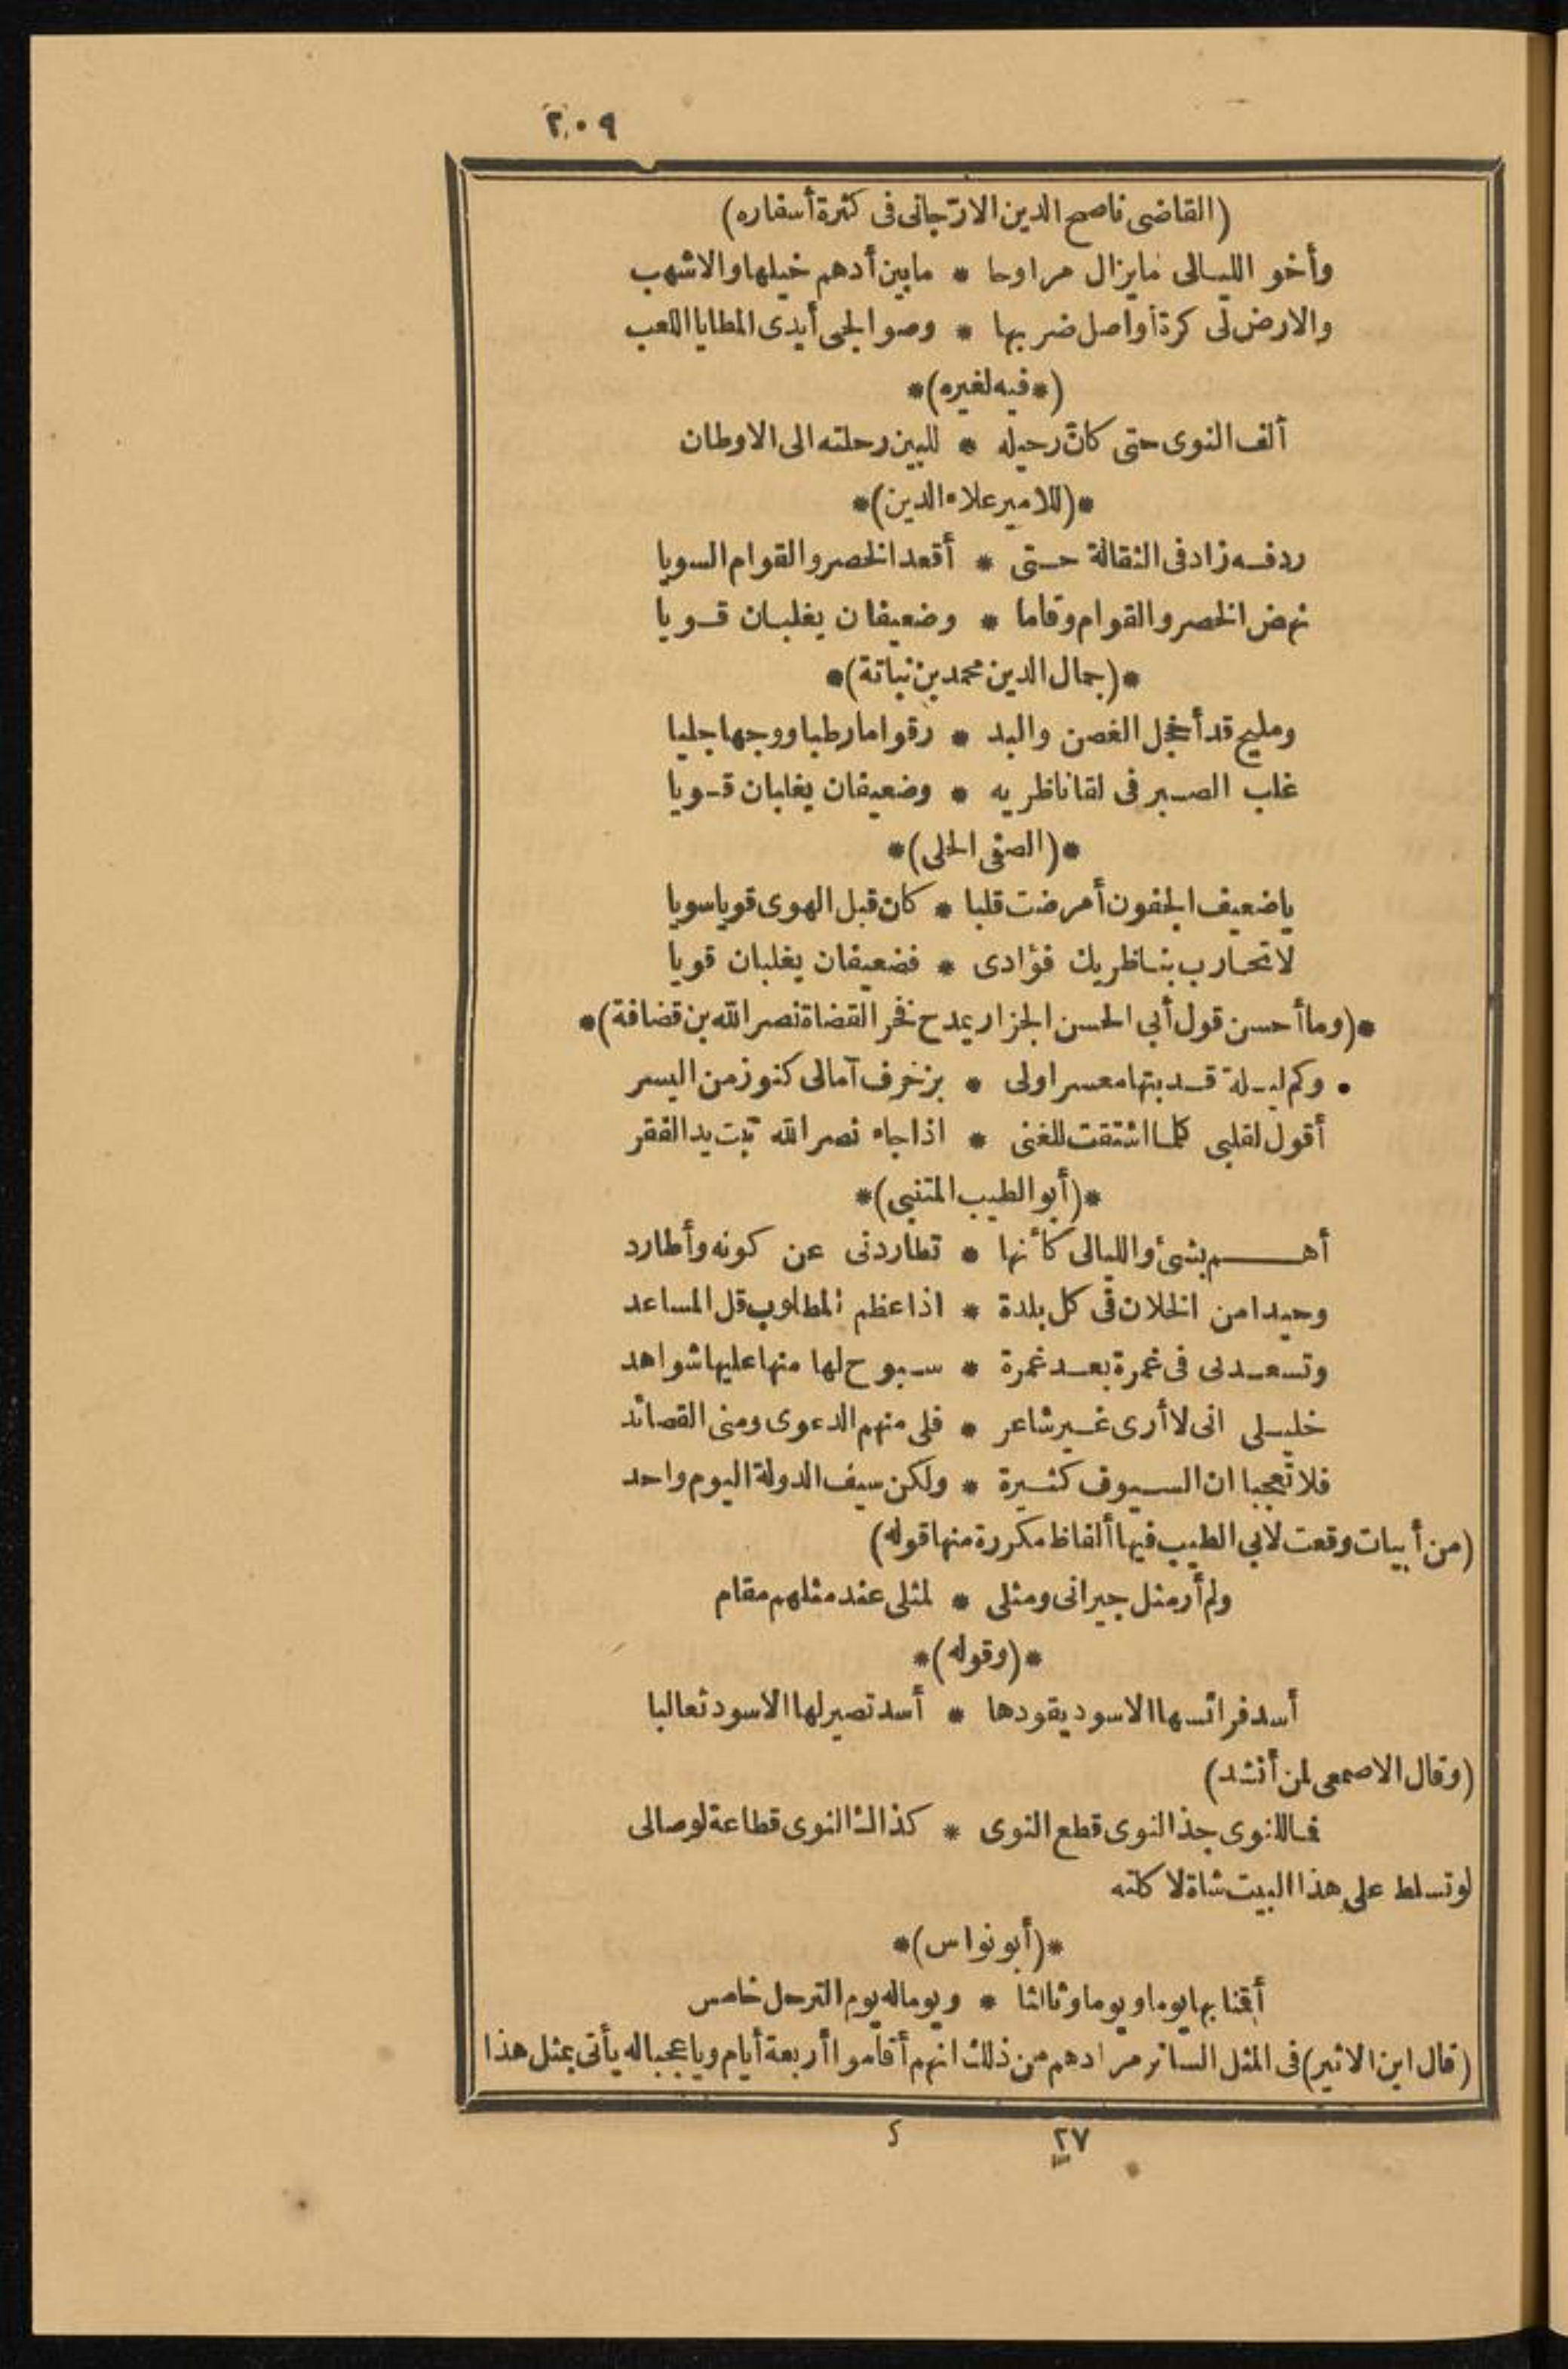 ٢٠٩
(القاضى ناصح الدين الارّجانى فى كثرة أسفاره)
وأخو الليالى مايزال مراوحا * مابين أدهم خيلها والاشهب
والارض لى كرة أواصل ضربها * وصوالجى أيدى المطايا اللعب
(*فيه لغيره)*
ألف النوى حتى كانّ رحيله * للبين رحلته الى الاوطان
*(للامير علاء الدين)*
ردفه زاد فى الثقالة حتى * أقعد الخصر والقوام السويا
نهض الخصر والقوام وقاما * وضعيفان يغلبان قويا
*(جمال الدين محمد بن نباتة)*
ومليح قد أخجل الغصن والبد * رقواما رطبا ووجها جليا
غلب الصبر فى لقا ناظريه * وضعيفان يغلبان قويا
*(الصفى الحلى)*
ياضعيف الجفون أمرضت قلبا * كان قبل الهوى قويا سويا
لاتحارب بناظريك فؤادى * فضعيفان يغلبان قويا
*(وما أحسن قول أبى الحسن الجزار يمدح فخر القضاة نصر الله بن قضافة)*
وكم ليلة قد بتها معسرا ولى * بزخرف آمالى كنوز من اليسر
أقول لقلبى كلما اشتقت للغنى * اذا جاء نصر الله تبت يد الفقر
*(أبو الطيب المتنبى)*
أهم بشئ والليالى كأنها * تطاردنى عن كونه وأطارد
وحيدا من الخلان فى كل بلدة * اذا عظم المطلوب قل المساعد
وتسعدنى فى غمرة بعد غمرة * سبوح لها منها عليها شواهد
خليلى انى لا أرى غير شاعر * فلى منهم الدعوى ومنى القصائد
فلا تعجبا ان السيوف كثيرة * ولكن سيف الدولة اليوم واحد
(من أبيات وقعت لابى الطيب فيها ألفاظ مكررة منها قوله)
ولم أر مثل جيرانى ومثلى * لمثلى عند مثلهم مقام
*(وقوله)*
أسد فرائسها الاسود يقودها * أسد تصير لها الاسود ثعالبا
(وقال الاصمعى لمن أنشد)
فما للنوى جذ النوى قطع النوى * كذاك النوى قطاعة لوصالى
لو تسلط على هذا البيت شاة لا كلته
*(أبو نواس)*
أقنا بها يوما ويوما وثالثا * ويوما له يوم الترحل خامس
(قال ابن الاثير) فى المثل السائر مرادهم من ذلك انهم أقاموا أربعة أيام وياعجبا له يأتى بمثل هذا
٢٧ ك